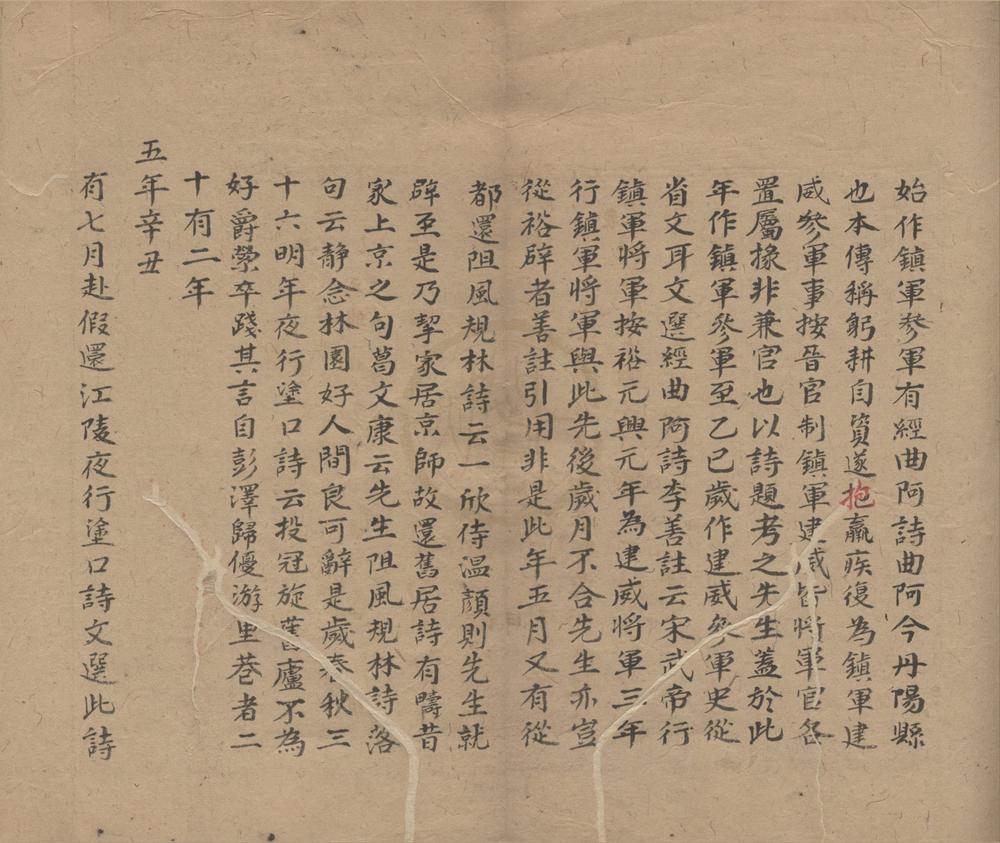 始作鎮軍參軍有經曲阿詩曲阿今丹陽縣
也本傳稱躬耕自資遂抱羸疾復為鎮軍建
威參軍事按晉官制鎮軍建威皆將軍官各
置屬掾非兼官也以詩題考之先生蓋於此
年作鎮軍參軍至乙巳歲作建威參軍史從
省文耳文選經曲阿詩李善註云宋武帝行
鎮軍將軍按裕元興元年為建威將軍三年
行鎮軍將軍與此先後歲月不合先生亦豈
從裕辟者善註引用非是此年五月又有從
都還阻風規林詩云一欣侍温顔則先生就
辟至是乃挈家居京師故還舊居詩有疇昔
家上京之句葛文康云先生阻風規林詩落
句云静念林園好人間良可辭是歲春秋三
十六明年夜行塗口詩云投冠旋舊廬不為
好爵縈卒踐其言自彭澤歸優游里巷者二
十有二年
五年辛丑
有七月赴假還江陵夜行塗口詩文選此詩